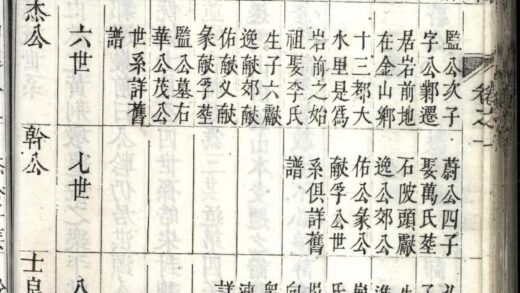 卷之一
監公次子
字公鄴遷
居岩前地
在金山鄉
十三都大
水里是爲
岩前之始
祖娶李氏
生子六獻
逸獻郊獻
佑獻文獻
象獻孚塟
監公墓右
華公茂公
世系詳舊
譜
蔚公四子
娶萬氏塟
石陂頭獻
逸公郊公
佑公象公
獻孚公世
系俱詳舊
譜
六世
七世
八
杰公
幹公
士良